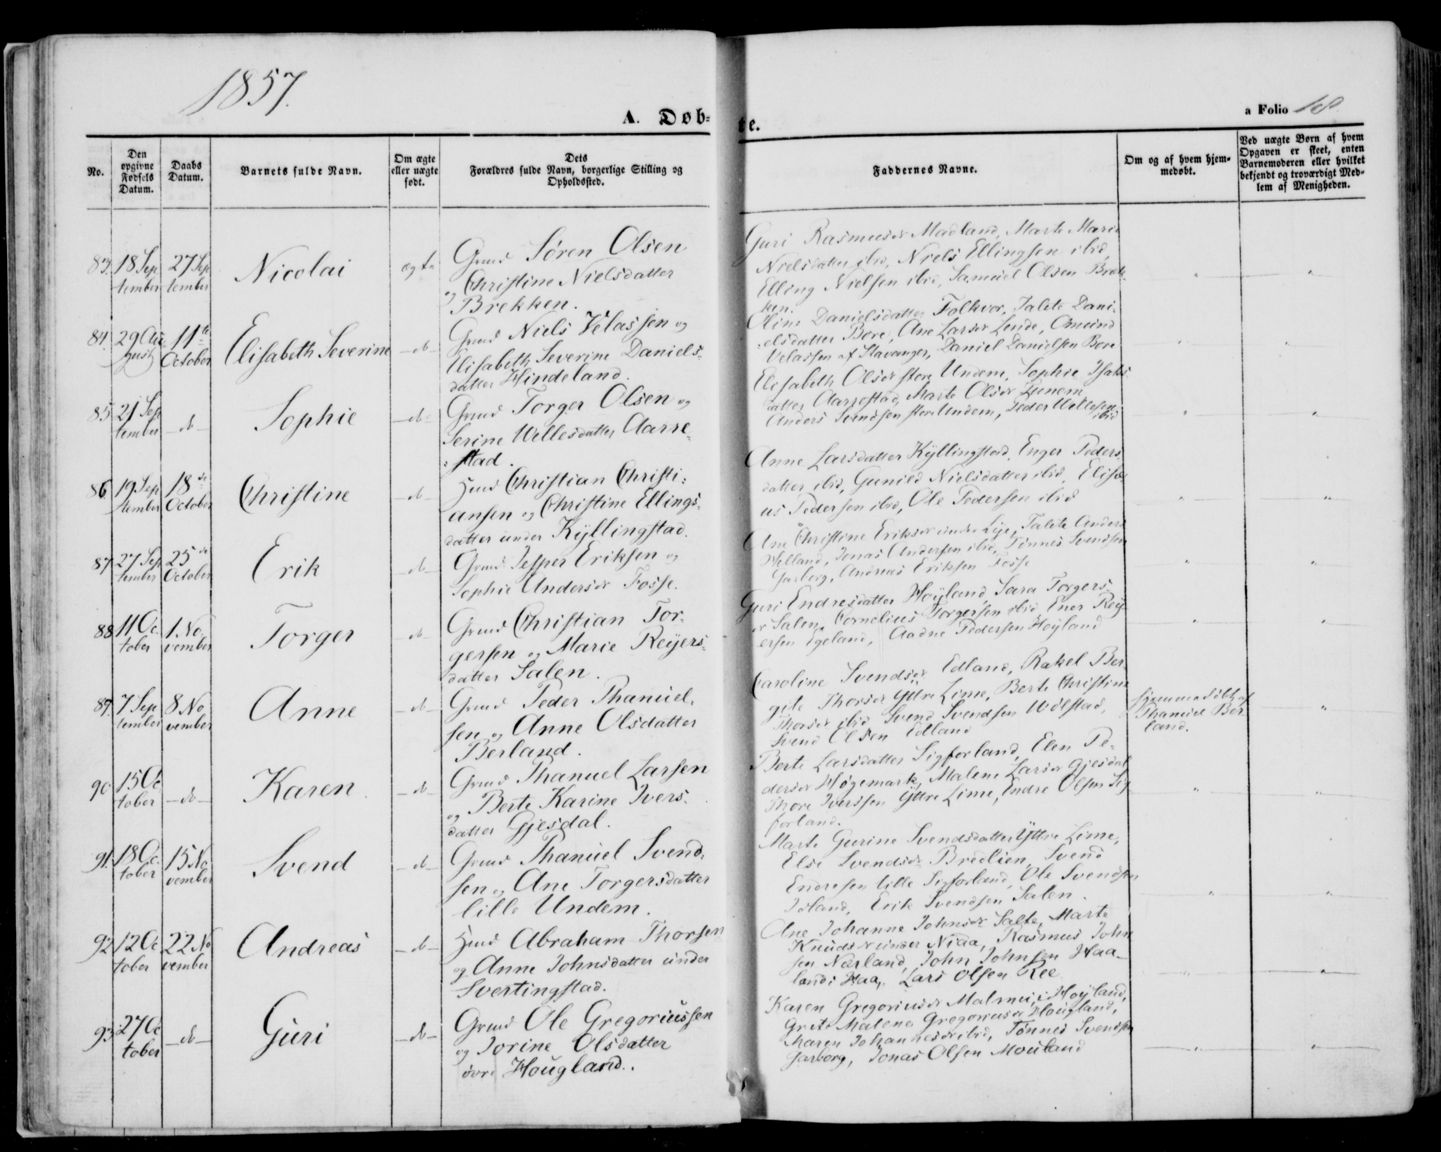 1857.
A. Døb=
te.
a Folio 68
No.
Den opgivne Fødsels Datum.
Daabs Datum.
Barnets fulde Navn.
Om ægte eller uægte født.
Dets Forældres fulde Navn, borgerlige Stilling og Opholdssted.
Faddernes Navne.
Om og af hvem hjem=
medøbt.
Ved uægte Børn af hvem
Opgaven er skeet, enten
Barnemoderen eller hvilket
bekjendt og troværdigt Med=
lem af Menigheden.
83. 18 Sep
tember
27 Sep
tember
Nicolai
ægte
Grmd Søren Olsen
Christine Nielsdatter
og Brekken.
Guri Rasmusdr Madland, Marte Marie
Nielsdatter ibid, Niels Ellingsen ibid,
Elling Nielsen ibid, Samuel Olsen Brek
ken.
84. 29 Au
gust
11te
October
Elisabeth Severine
do
Grmd Niels Velassen og
Elisabeth Severine Daniels=
datter Hindeland.
Oline Danielsdatter Folkvor, Talete Dani=
elsdatter Bore, Ane Larsdr Lende, Omund
Velassen af Stavanger, Daniel Danielsen Bore
85. 21 Sep
tember
do
Sophie
do
Grmd Torger Olsen og
Serine Willesdatter Aarre=
stad.
Elisabeth Olsdr store Undem, Sophie Isaks
datter Aarrestad, Marte Olsdr
Anders Svendsen store Undem, Peder Willesen
ibid
86. 19 Sep
tember
18de
October
Christine
do
Hmd Christian Christi=
ansen og Christine Ellings=
datter under Kyllingstad.
Anne Larsdatter Kyllingstad, Enger Peders
datter ibid, Gunild Nielsdatter ibid, Elise
us Pedersen ibid, Ole Pedersen ibid
87. 27 Sep
tember
25de
October
Erik
do
Grmd Jesper Eriksen og
Sophie Andersdr Fosse.
Ane Christine Eriksdr under Lye, Talete Anders
Helland, Jonas Andersen ibid, Tønnes Svendsen
Garborg, Andreas Eriksen Fosse
88. 11 Oc
tober
1 No
vember
Torger
do
Grmd Christian Tor=
gersen og Marie Reijers=
datter Salen.
Guri Endresdatter Høyland, Sara Torgers=
dr Salen, Cornelius Torgersen ibid, Ener Reij
ersen Egeland, Aadne Pedersen Høyland
89. 7 Sep
tember
8 No
vember
Anne
do
Grmd Peder Thanuel=
sen og Anne Olsdatter
Berland.
Caroline Svendsdr Edland, Rakel Ber
gite Thorsdr Yttre Lime, Berte Christine
Thorsdr ibid, Svend Svendsen Udstad,
Svend Olsen Edland
Hjemmedøbt af
Thanuel Ber
land.
90. 15 Oc
tober
do
Karen
do
Grmd Thanuel Larsen
og Berte Karine Ivers=
datter Gjesdal.
Berte Larsdatter Sigforland, Elen Pe=
dersdr Høgemark, Malene Larsdr Gjesdal
Thore Iverssen Yttre Lime, Endre Olsen Sig
forland.
91. 18 Oc
tober
15 No
vember
Svend
do
Grmd Thanuel Svend=
sen og Ane Torgersdatter
lille Undem.
Marte Gurine Svendsdatter Yttre Lime,
Else Svendsdr Bredlien, Svend
Endresen lille Sigforland, Ole Svendsen
Joland, Erik Svendsen Salen.
92. 12 Oc
tober
22 No
vember
Andreas
do
Hmd Abraham Thorsen
og Anne Johnsdatter under
Svertingstad.
Ane Johanne Johnsdr Salte, Marte
Knudsdr under Niaa, Rasmus John
sen Nærland, John Johnsen Haa=
land i Haa, Lars Olsen Ree
93. 27 Oc
tober
do
Guri
do
Grmd Ole Gregoriussen
og Torine Olsdatter
øvre Hougland.
Karen Gregoriusdr Malmei i Høyland,
Grete Malene Gregoriusdr Hougland,
Maren Johannesdr ibid, Tønnes Svendsen
Garborg, Jonas Olsen Mouland